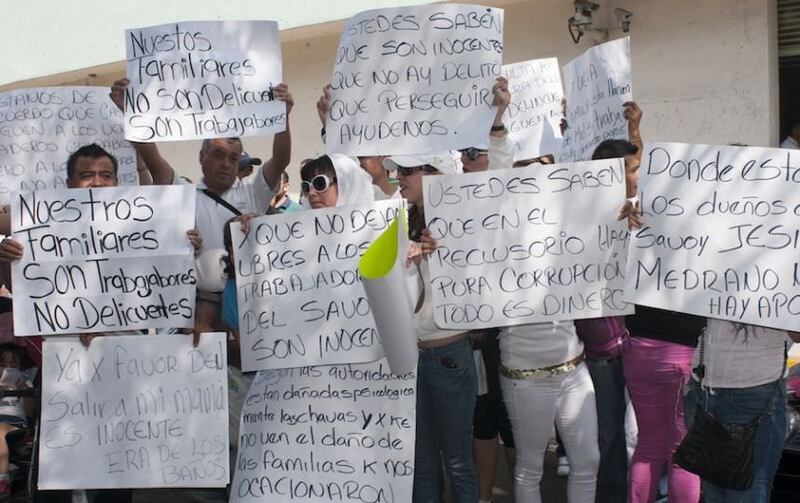 Nuestos
familiares
No son Delicuentes
son Trabajadores
Ustedes Saben
que son inocentes
que no ay Delito
que perseguir
Ayudenos.
Nuestros
familiares
son Trabajadores
no Delicuentes
Y que no dejan
libres a los
trabajador
del Savoy
son inocen
Ustedes Saben
que en el
reclusorio
pura corrupción
todo es dinero
Donde esta
los dueños
Savoy Jesu
Medrano
hay apo
Ya x favor Den
Salir a mi mamá
es inocente
era de los
baños
las autorida
estan dañadas psicologica
mente las chavas y x ke
no ven el daño de
las familias k nos
ocacionaron